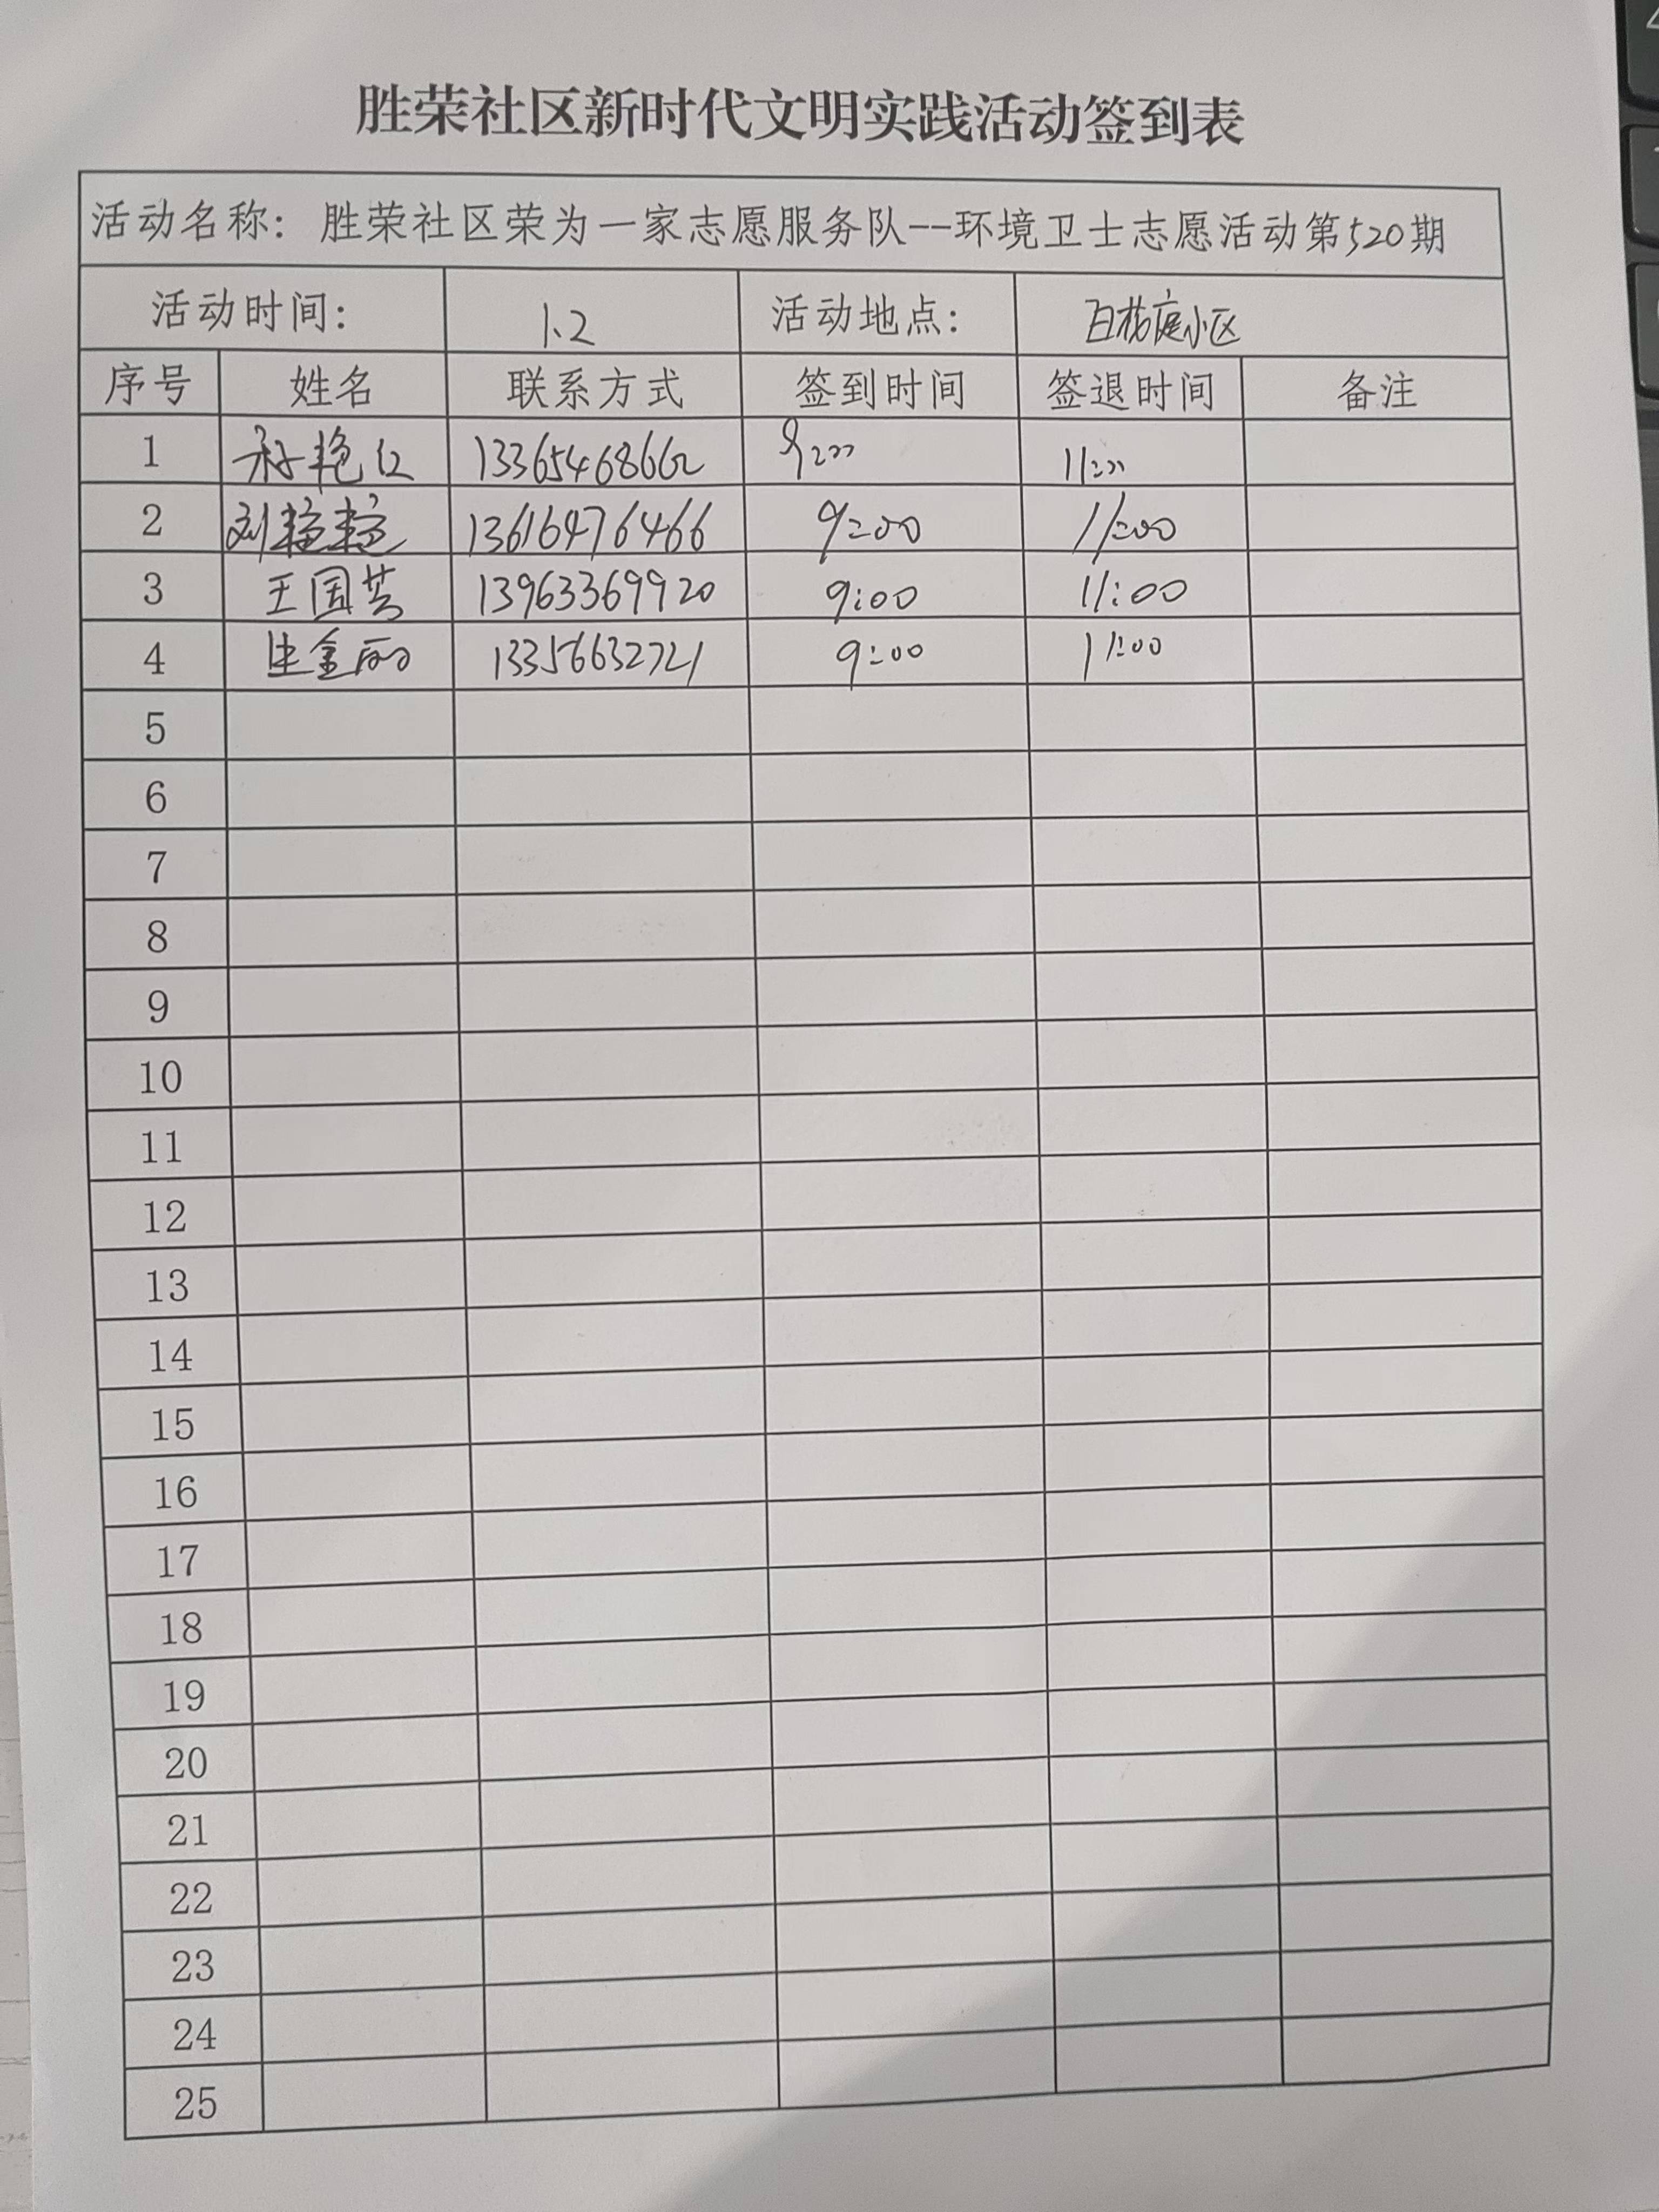 胜荣社区新时代文明实践活动签到表
活动名称: 胜荣社区荣为一家志愿服务队--环境卫士志愿活动第520期
活动时间: 1.2 活动地点: 小区
序号 姓名 联系方式 签到时间 签退时间 备注
1 13365468662 9:00 11:00
2 刘 13616476466 9:00 11:00
3 王国芸 13963369920 9:00 11:00
4 生金丽 13356632721 9:00 11:00
5
6
7
8
9
10
11
12
13
14
15
16
17
18
19
20
21
22
23
24
25